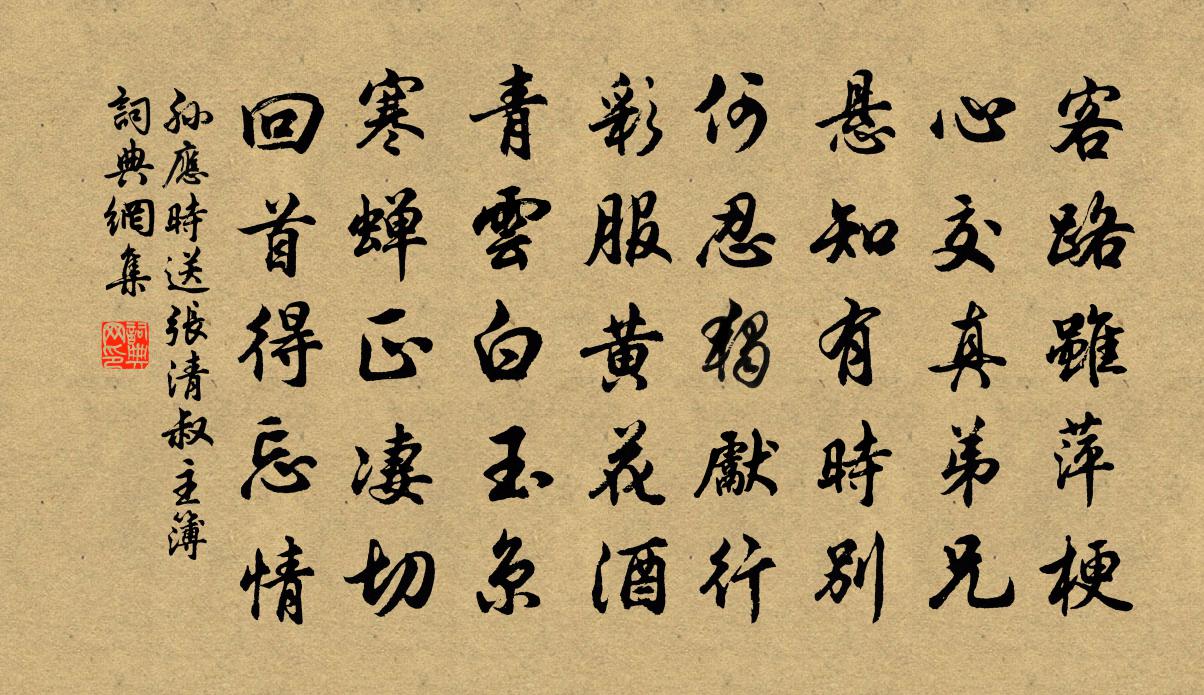 客路雖萍梗
心交真弟兄
悬知有時别
何忍獨獻行
彩服黄花酒
青雲白玉京
寒蝉正凄切
回首得忘情
孫應時送張清叔主簿
詞典網集
詞典网印